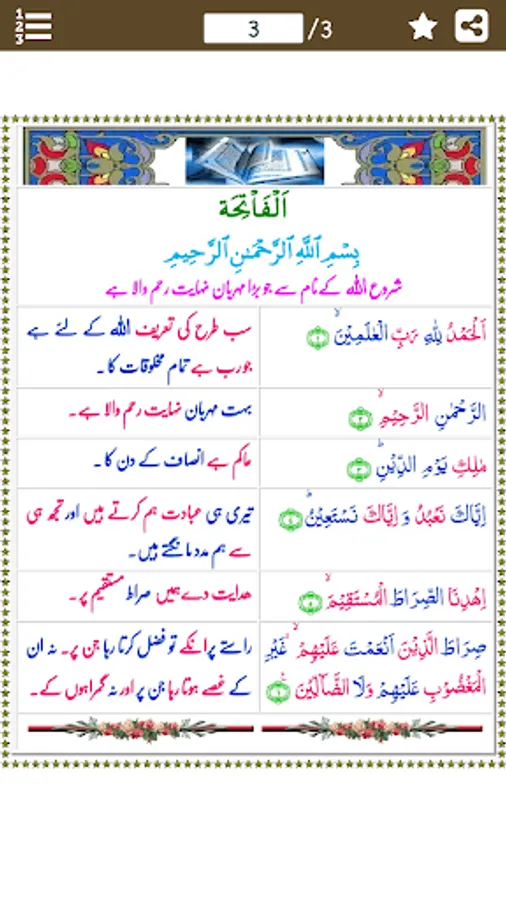 1
2
3
3 /3
اَلْفَاْتِحَة
بِسْمِ ٱللَّهِ ٱلرَّحْمَٰنِ ٱلرَّحِيمِ
شروع اللہ کے نام سے جو بڑا مہربان نہایت رحم والا ہے
اَلْحَمْدُ لِلّٰهِ رَبِّ الْعٰلَمِيْنَۙ ﴿۱﴾
سب طرح کی تعریف اللہ کے لئے ہے
جو رب ہے تمام مخلوقات کا۔
الرَّحْمٰنِ الرَّحِيْمِۙ ﴿۲﴾
بہت مہربان نہایت رحم والا ہے۔
مٰلِكِ يَوْمِ الدِّيْنِؕ ﴿۳﴾
حاکم ہے انصاف کے دن کا۔
اِيَّاكَ نَعْبُدُ وَ اِيَّاكَ نَسْتَعِيْنُؕ ﴿۴﴾
تیری ہی عبادت ہم کرتے ہیں اور تجھ ہی
سے ہم مدد مانگتے ہیں۔
اِهْدِنَا الصِّرَاطَ الْمُسْتَقِيْمَۙ ﴿۵﴾
ھدایت دے ھمیں صراط مستقیم پر۔
صِرَاطَ الَّذِيْنَ اَنْعَمْتَ عَلَيْهِمْ ۙ۬ غَيْرِ
الْمَغْضُوْبِ عَلَيْهِمْ وَلَا الضَّآلِّيْنَ ﴿۶﴾
راستے پر انکے تو فضل کرتا رہا جن پر۔ نہ ان
کے غصے ہوتا رہا جن پر اور نہ گمراہوں کے۔